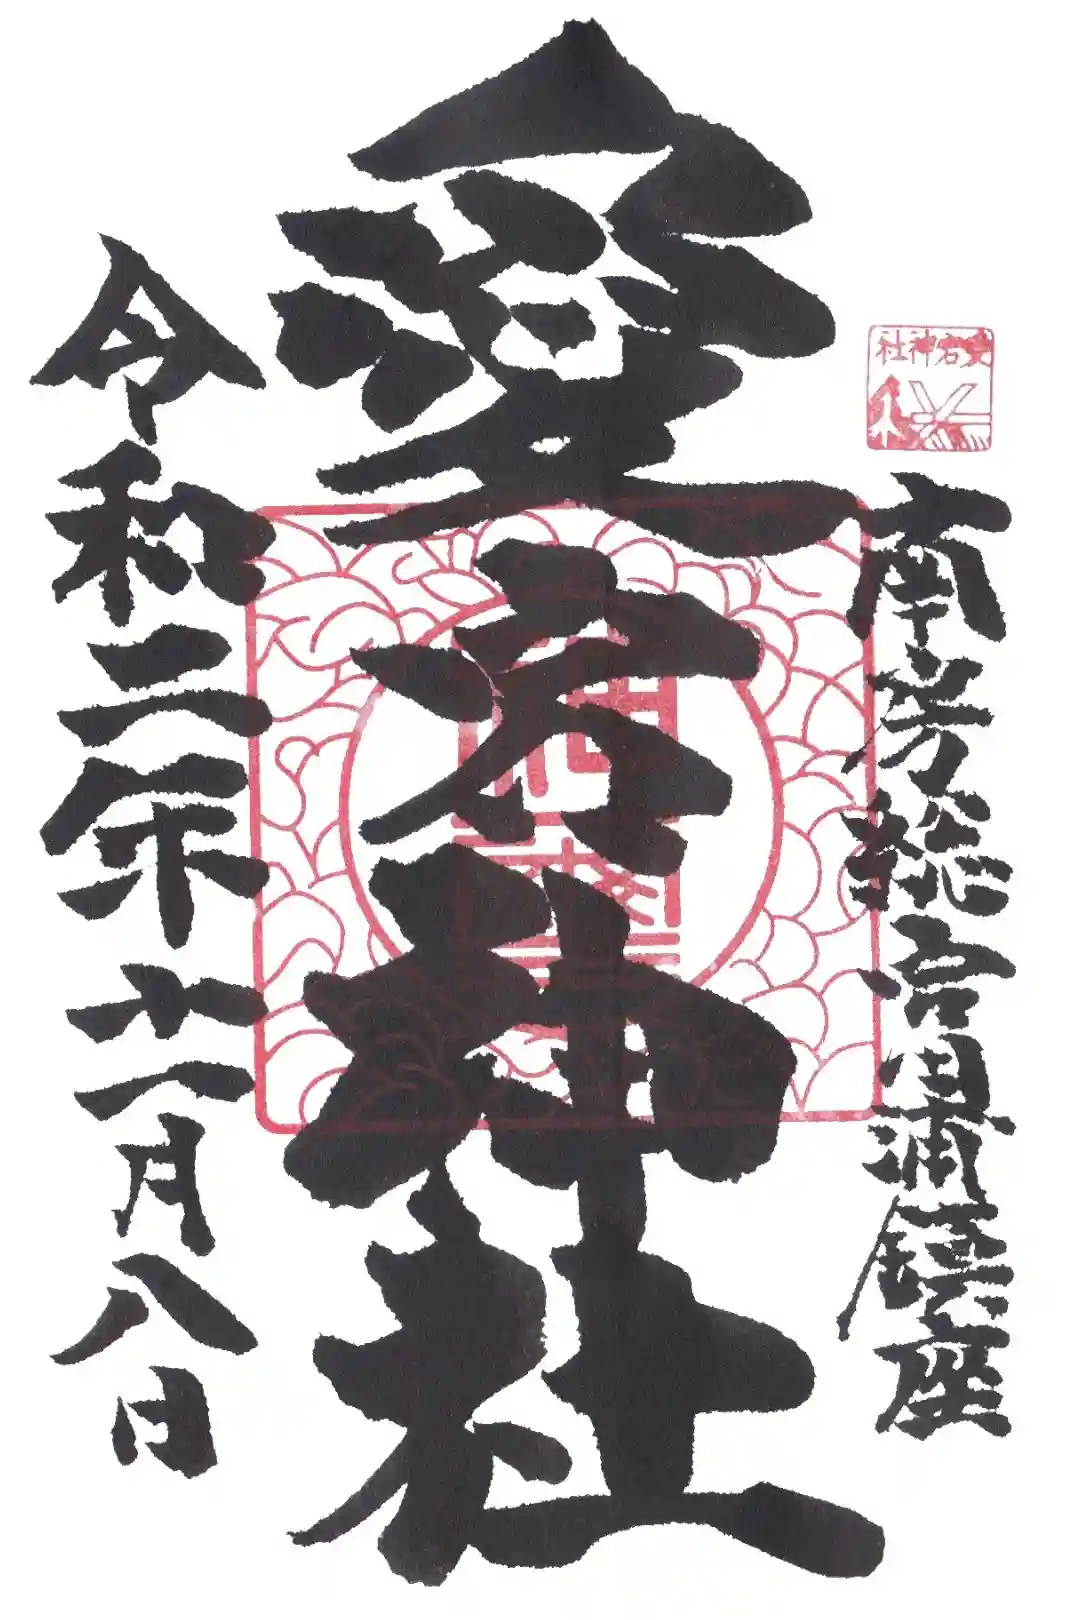 愛宕神社
南房総富浦鎮座
愛宕神社
令和二年十一月八日